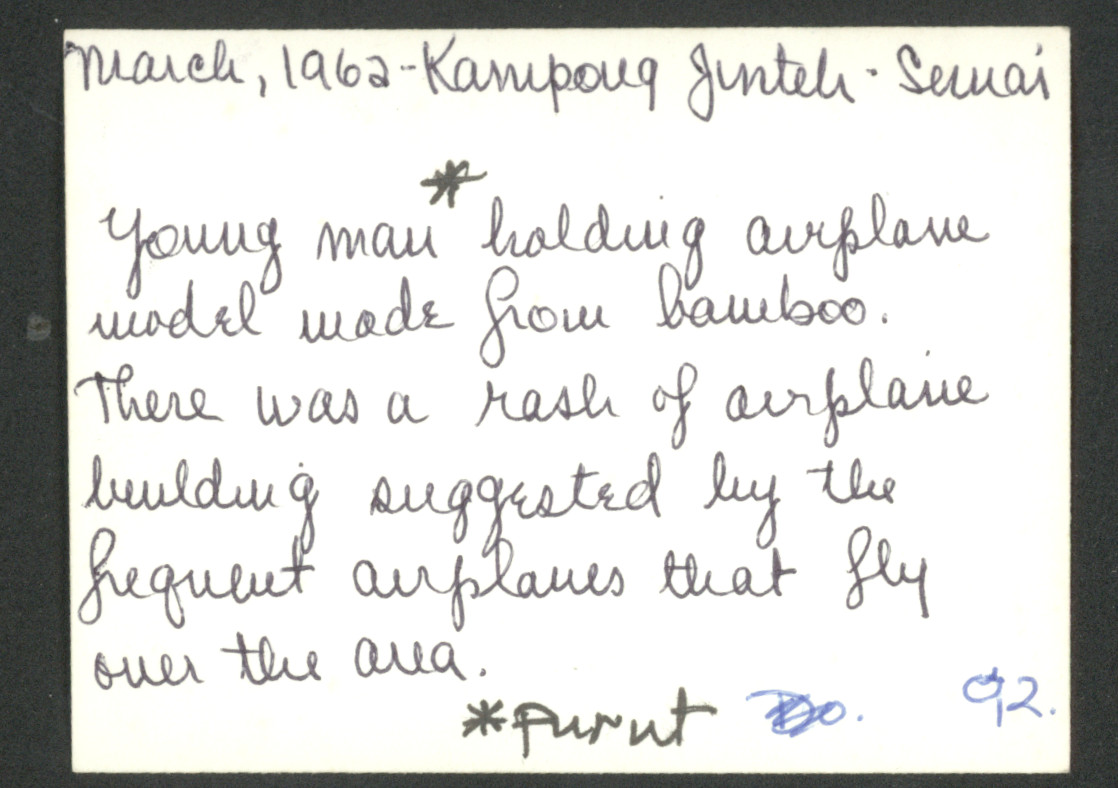 March, 1962 - Kampong Jinteh - Semai
Young man* holding airplane
model made from bamboo.
There was a rash of airplane
building suggested by the
frequent airplanes that fly
over the area.
*Purut 92.